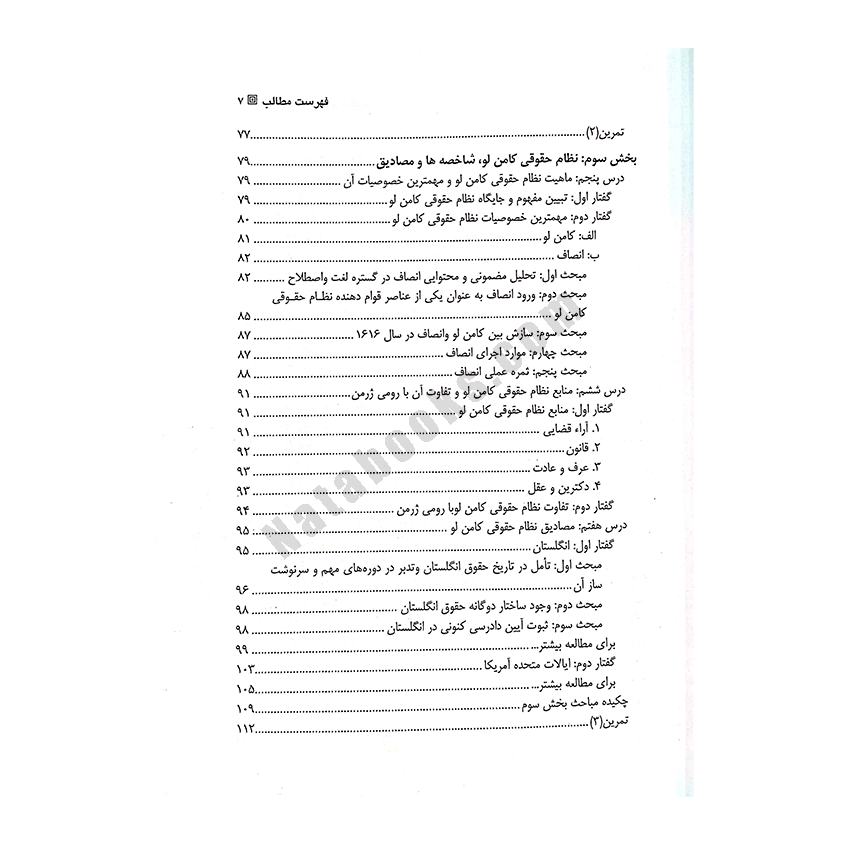 فهرست مطالب ۷
تمرین(۲)........۷۷
بخش سوم: نظام حقوقی کامن لو، شاخصه ها و مصادیق........۷۹
درس پنجم: ماهیت نظام حقوقی کامن لو و مهمترین خصوصیات آن........۷۹
گفتار اول: تبیین مفهوم و جایگاه نظام حقوقی کامن لو........۷۹
گفتار دوم: مهمترین خصوصیات نظام حقوقی کامن لو........۸۰
الف: کامن لو........۸۱
ب: انصاف........۸۲
مبحث اول: تحلیل مضمونی و محتوایی انصاف در گستره لغت واصطلاح........۸۲
مبحث دوم: ورود انصاف به عنوان یکی از عناصر قوام دهنده نظام حقوقی
کامن لو........۸۵
مبحث سوم: سازش بین کامن لو وانصاف در سال ۱۶۱۶........۸۷
مبحث چهارم: موارد اجرای انصاف........۸۷
مبحث پنجم: ثمره عملی انصاف........۸۸
درس ششم: منابع نظام حقوقی کامن لو و تفاوت آن با رومی ژرمن........۹۱
گفتار اول: منابع نظام حقوقی کامن لو........۹۱
۱. آراء قضایی........۹۱
۲. قانون........۹۲
۳. عرف و عادت........۹۳
۴. دکترین و عقل........۹۳
گفتار دوم: تفاوت نظام حقوقی کامن لوبا رومی ژرمن........۹۴
درس هفتم: مصادیق نظام حقوقی کامن لو........۹۵
گفتار اول: انگلستان........۹۵
مبحث اول: تأمل در تاریخ حقوق انگلستان وتدبر در دوره‌های مهم و سرنوشت
ساز آن........۹۶
مبحث دوم: وجود ساختار دوگانه حقوق انگلستان........۹۸
مبحث سوم: ثبوت آیین دادرسی کنونی در انگلستان........۹۸
برای مطالعه بیشتر........۹۹
گفتار دوم: ایالات متحده آمریکا........۱۰۳
برای مطالعه بیشتر........۱۰۵
چکیده مباحث بخش سوم........۱۰۹
تمرین(۳)........۱۱۲
Natabooks.com